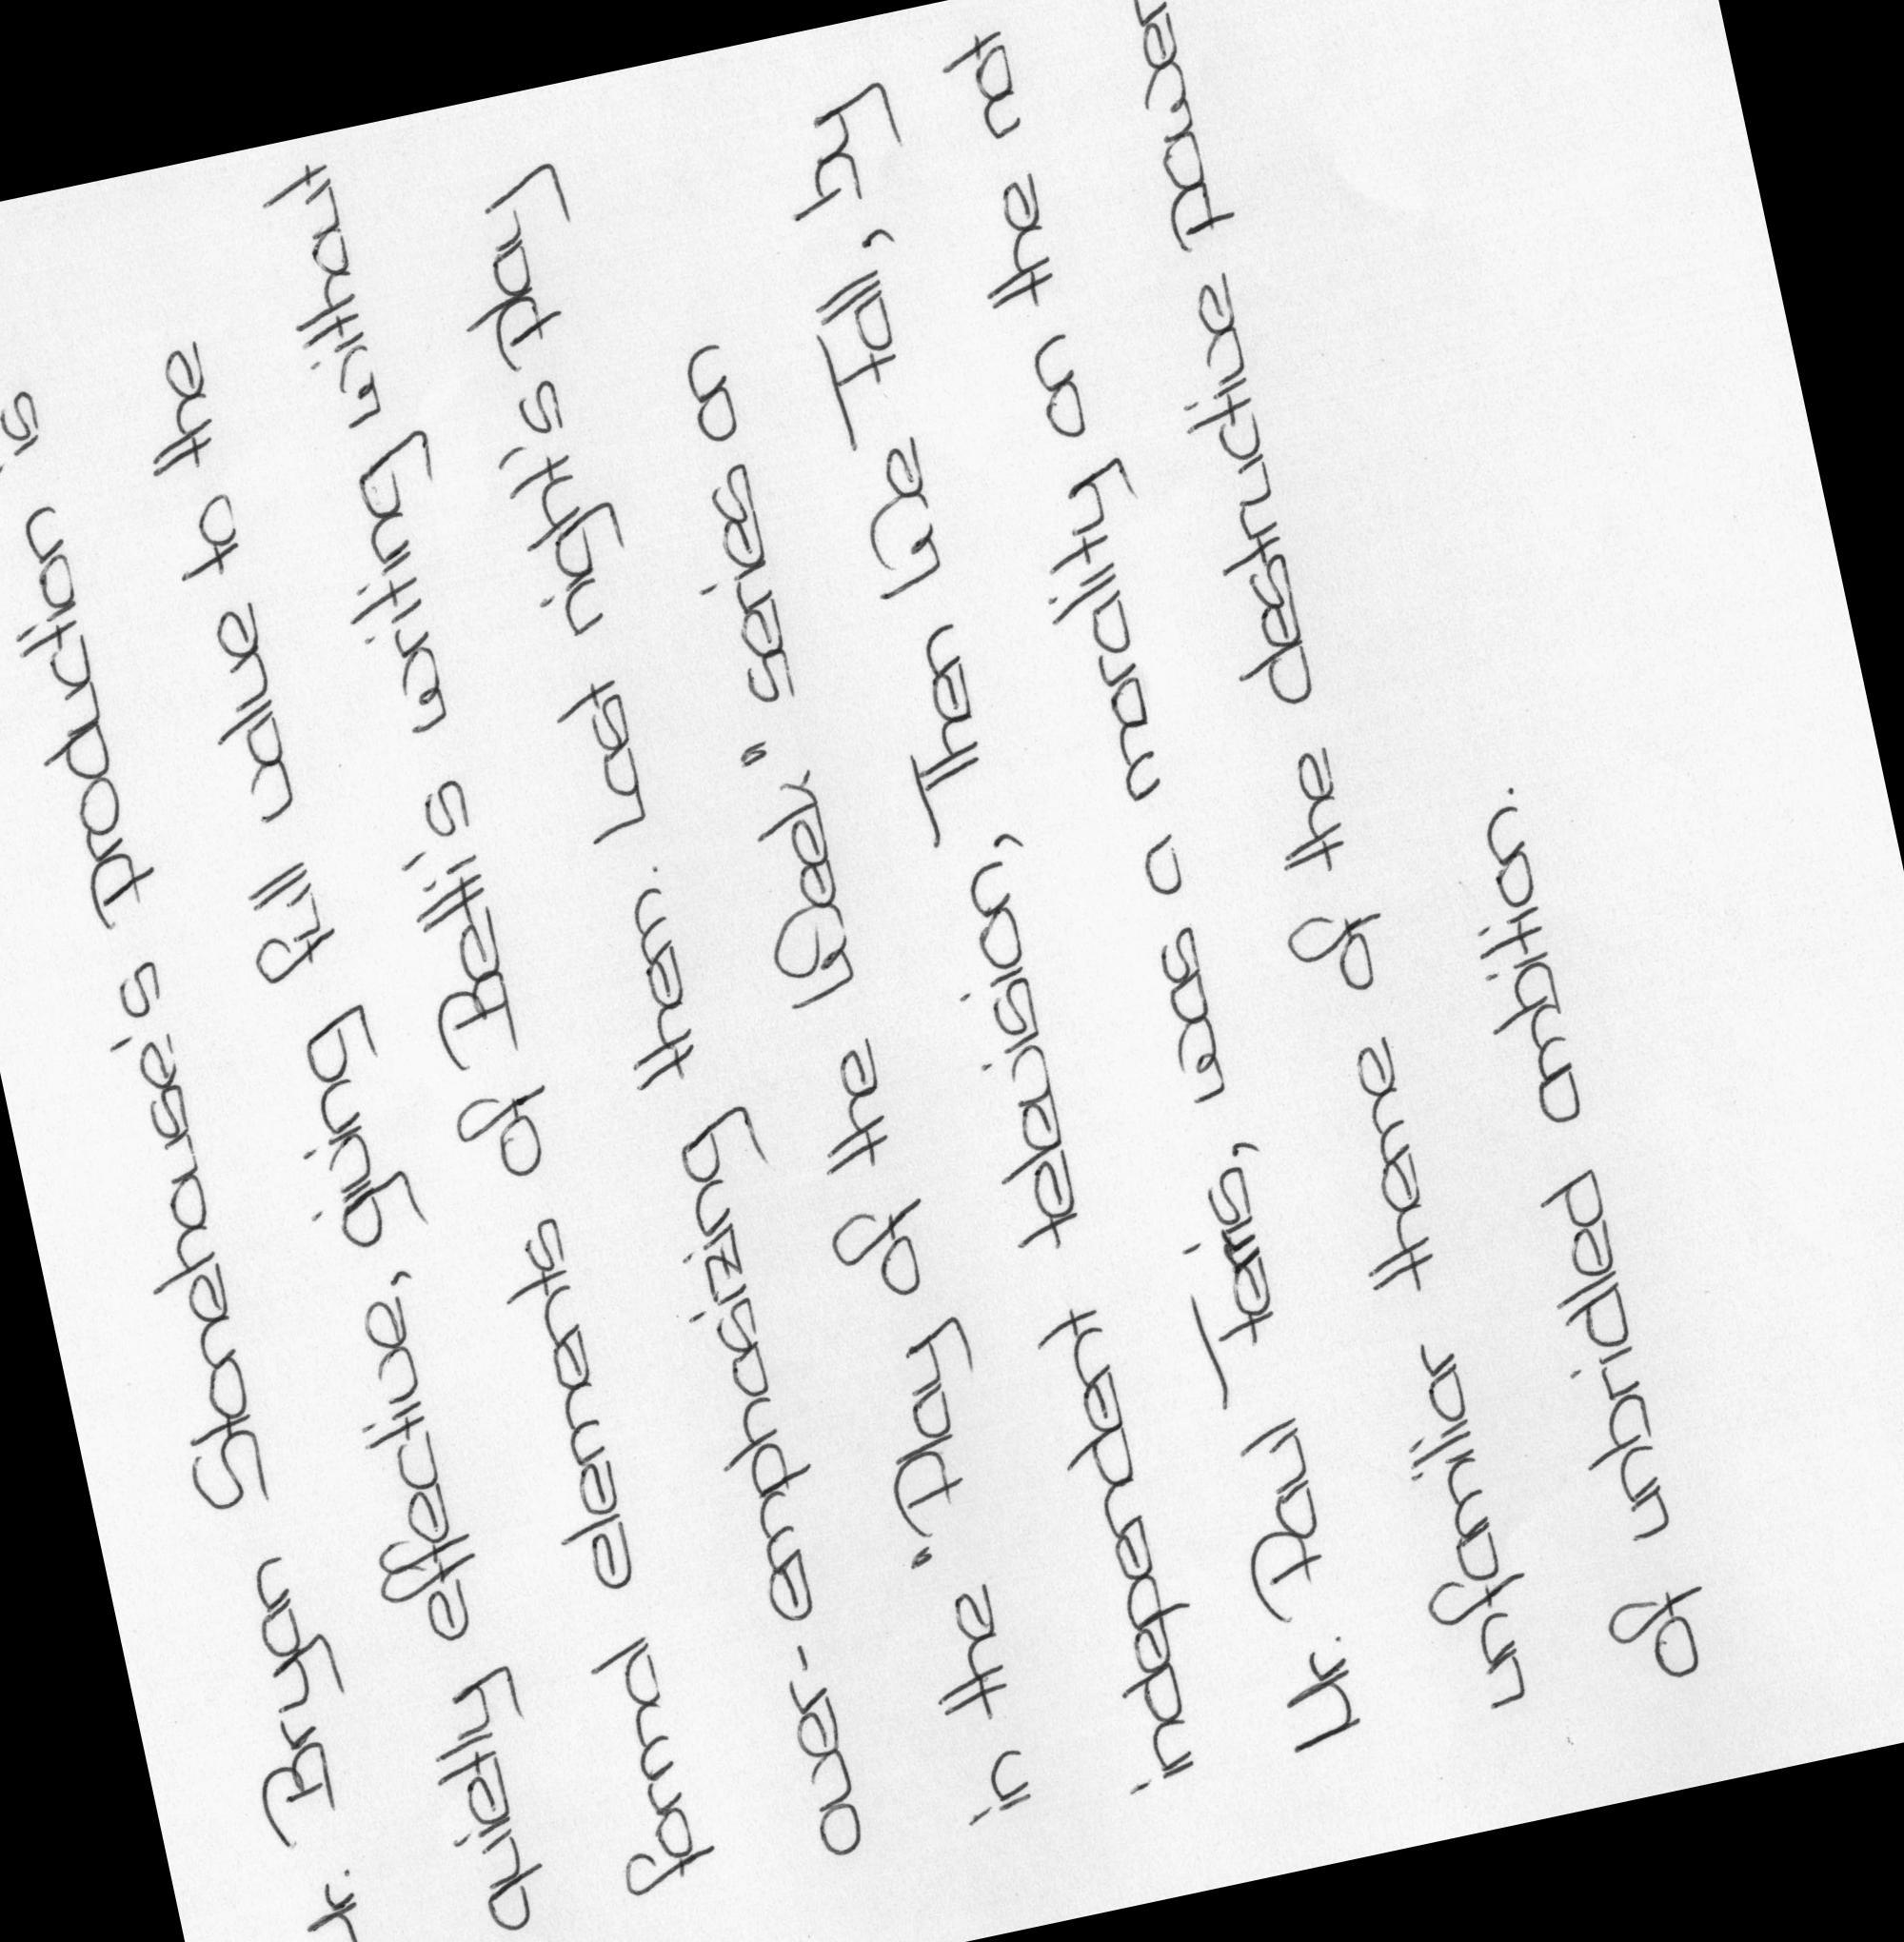 Mr. Bryan Stonehouse's production is
quietly effective, giving full value to the
formal elements of Betti's writing without
over-emphasizing them. Last night's play
in the "Play of the Week" series on
independent television, Then We Fall, by
Mr. Paul Tabois, was a morality on the not
unfamiliar theme of the destructive power
of unbridled ambition.